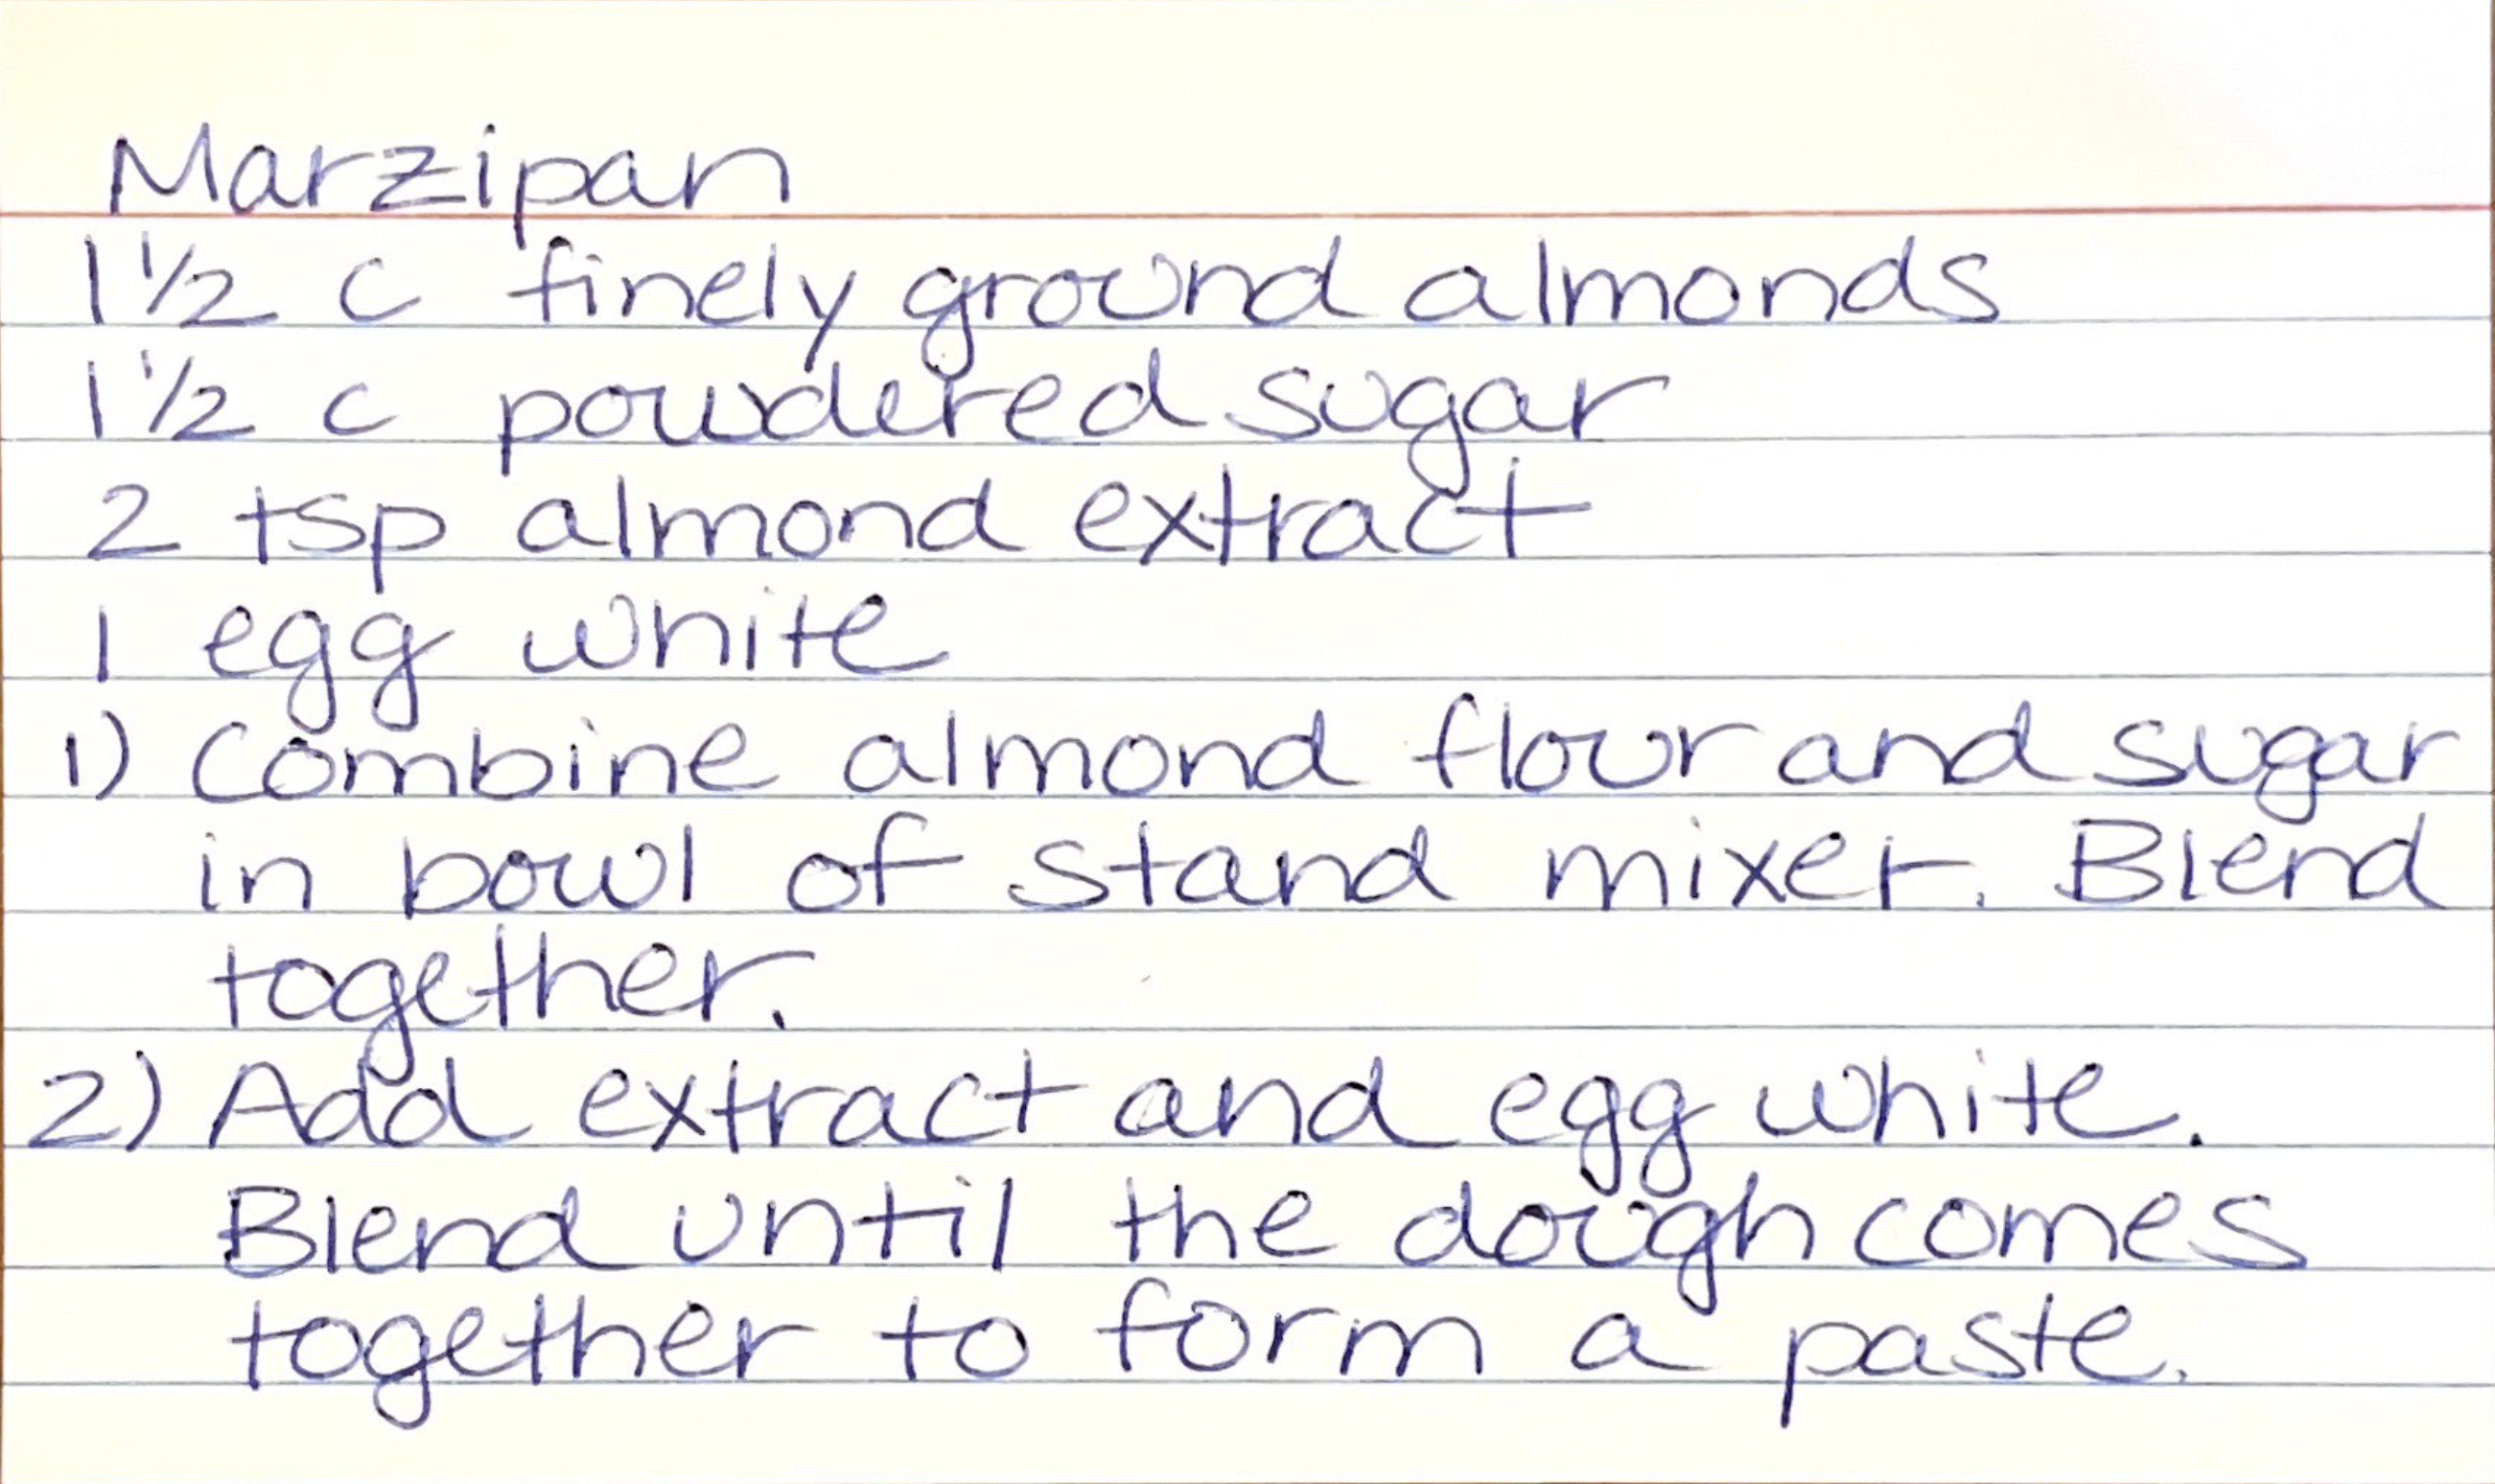 Marzipan
1 1/2 c finely ground almonds
1 1/2 c powdered sugar
2 tsp almond extract
1 egg white
1) Combine almond flour and sugar
in bowl of stand mixer. Blend
together.
2) Add extract and egg white.
Blend until the dough comes
together to form a paste.